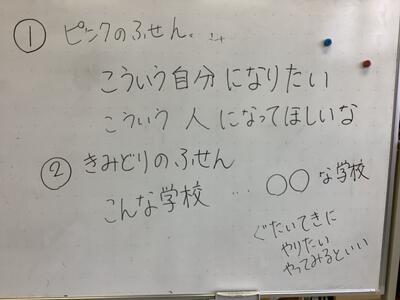 ① ピンクのふせん。
こういう自分になりたい
こういう人になってほしいな
② きみどりのふせん
こんな学校 … ○○な学校
ぐたいてきに
やりたい
やってみるといい